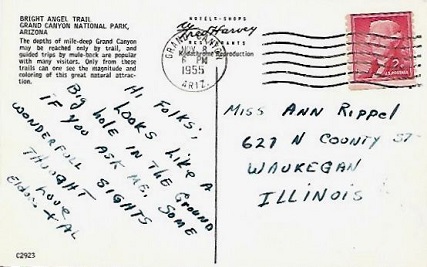 BRIGHT ANGEL TRAIL
GRAND CANYON NATIONAL PARK,
ARIZONA
The depths of mile-deep Grand Canyon
may be reached only by trail, and
guided trips by mule-back are popular
with many visitors. Only from these
trails can one see the magnitude and
coloring of this great natural attrac-
tion.
Hi, Folks;
LOOKS LIKE A
Big hole IN THE GROUND
IF YOU ASK ME. SOME
WONDERFULL SIGHTS
THOUGHT
Love
+ AL
C2923
HOTELS-SHOPS
Fred Harvey
RESTAURANTS
Kodachrome Reproduction
GRAND CANYON
NOV 8
PM
1955
ARIZ.
2¢
Miss ANN Rippel
627 N COUNTY ST
WAUKEGAN
ILLINOIS